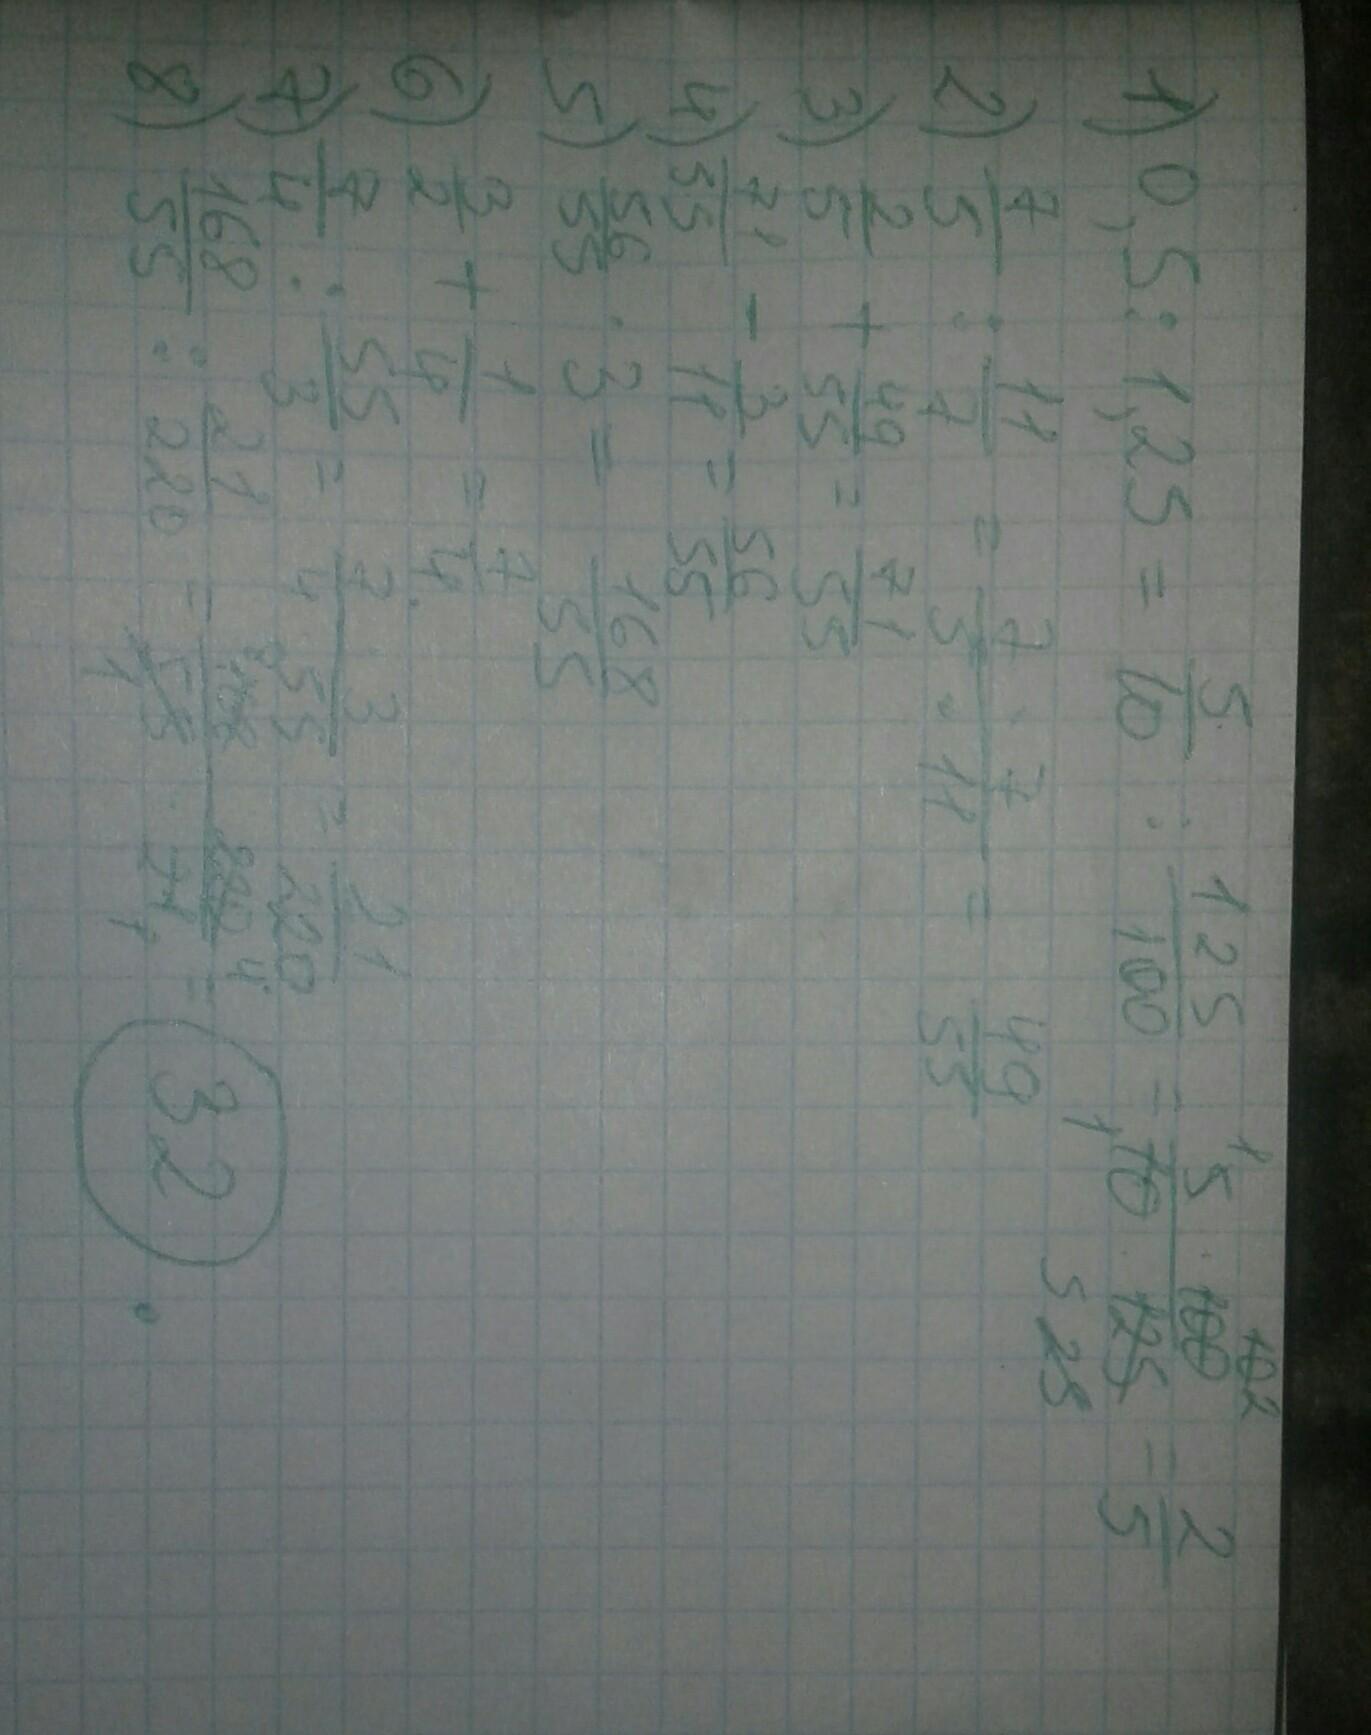 1) 0,5 : 1,25 = 5/10 : 125/100 = 5 · 100/10 · 125 = 2/5
2) 7/5 : 11/7 = 7 · 7/5 · 11 = 49/55
3) 2/5 + 49/55 = 71/55
4) 71/55 - 3/11 = 56/55
5) 56/55 · 3 = 168/55
6) 3/2 + 1/4 = 7/4
7) 7/4 : 55/3 = 7 · 3/4 · 55 = 21/220
8) 168/55 : 21/220 = 168 · 220/55 · 21 = 32